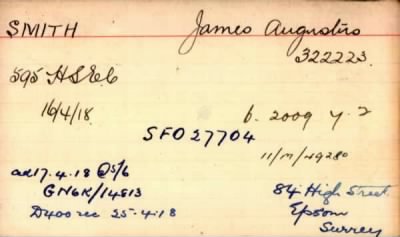 SMITH James Augustus
322223.
595 HSE6
16/4/18. b. 2009 y. 2
SFO27704
11/M/49280
ad 17.4.18 Q5/6
GN6K/14813
D400 rec 25-4-18
84 High Street
Epsom
Surrey